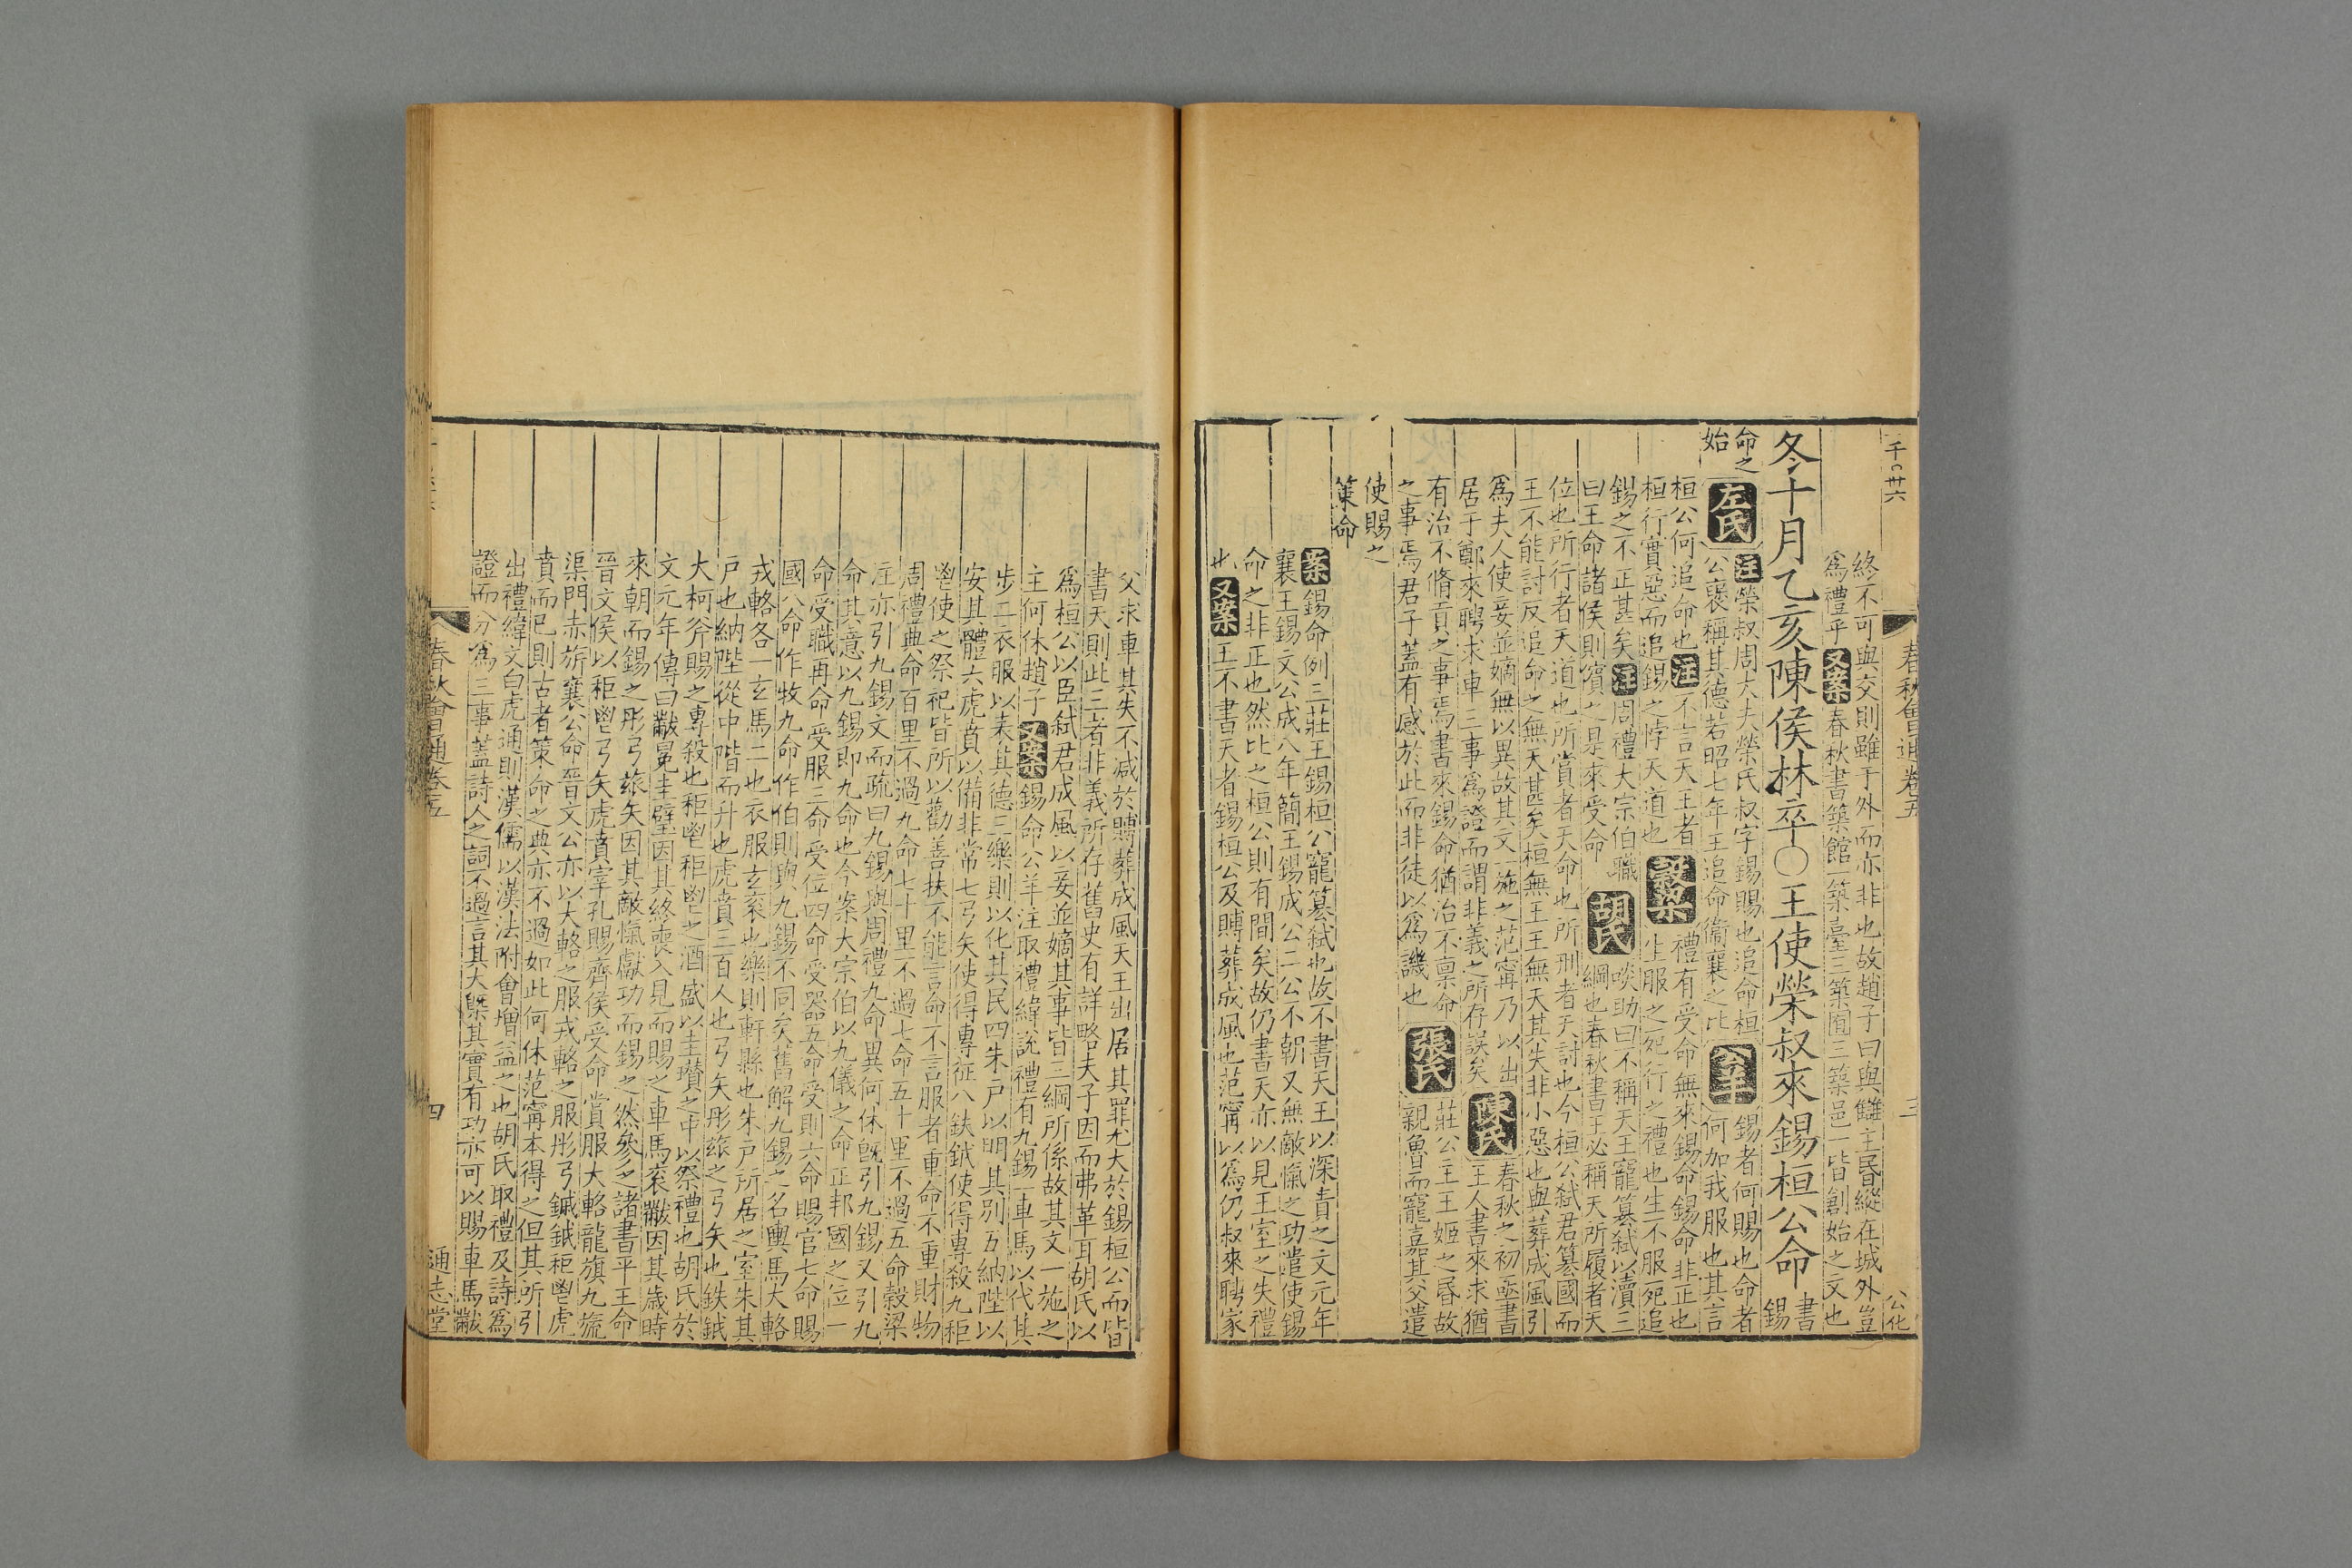 千〇卅六
春秋會通卷五
三
公化
終不可與交則雖于外而亦非也故趙子曰與讎主昬縱在城外豈
爲禮乎又案春秋書築館一築臺三築囿三築邑一皆創始之文也
冬十月乙亥陳侯林卒〇王使榮叔來錫桓公命書
錫
命之
始
左氏注榮叔周大夫榮氏叔字錫賜也追命桓
公襃稱其德若昭七年王追命衞襄之比公羊錫者何賜也命者
何加我服也其言
桓公何追命也注不言天王者
桓行實惡而追錫之悖天道也穀梁禮有受命無來錫命錫命非正也
生服之死行之禮也生不服死追
錫之不正甚矣注周禮大宗伯職
曰王命諸侯則儐之是來受命胡氏啖助曰不稱天王寵簒弑以瀆三
綱也春秋書王必稱天所履者天
位也所行者天道也所賞者天命也所刑者天討也今桓公弑君簒國而
王不能討反追命之無天甚矣桓無王王無天其失非小惡也與葬成風引
爲夫人使妾並嫡無以異故其文一施之范寗乃以出
居于鄭來聘求車三事爲證而謂非義之所存誤矣陳氏春秋之初亟書
王人書來求猶
有治不脩貢之事焉書來錫命猶治不稟命
之事焉君子蓋有感於此而非徒以爲譏也張氏莊公主王姬之昬故
親魯而寵嘉其父遣
使賜之
策命
案錫命例三莊王錫桓公寵簒弑也故不書天王以深責之文元年
襄王錫文公成八年簡王錫成公二公不朝又無敵愾之功遣使錫
命之非正也然比之桓公則有間矣故仍書天亦以見王室之失禮
也又案王不書天者錫桓公及賵葬成風也范甯以爲仍叔來聘家
父求車其失不減於賵葬成風天王出居其罪尤大於錫桓公而皆
書天則此三者非義所存舊史有詳略夫子因而弗革耳胡氏以
爲桓公以臣弑君成風以妾並嫡其事皆三綱所係故其文一施之
主何休趙子又案錫命公羊注取禮緯說禮有九錫一車馬以代其
步二衣服以表其德三樂則以化其民四朱戶以明其別五納陛以
安其體六虎賁以備非常七弓矢使得專征八鈇鉞使得專殺九秬
鬯使之祭祀皆所以勸善扶不能言命不言服者重命不重財物
周禮典命百里不過九命七十里不過七命五十里不過五命穀梁
注亦引九錫文而疏曰九錫與周禮九命異何休旣引九錫又引九
命其意以九錫即九命也今案大宗伯以九儀之命正邦國之位一
命受職再命受服三命受位四命受器五命受則六命賜官七命賜
國八命作牧九命作伯則與九錫不同矣舊解九錫之名輿馬大輅
戎輅各一玄馬二也衣服玄衮也樂則軒縣也朱戶所居之室朱其
戶也納陛從中階而升也虎賁三百人也弓矢彤玈之弓矢也鈇鉞
大柯斧賜之專殺也秬鬯秬鬯之酒盛以圭瓚之中以祭禮也胡氏於
文元年傳曰黻冕圭璧因其終喪入見而賜之車馬衮黻因其歲時
來朝而錫之彤弓玈矢因其敵愾獻功而錫之然參之諸書平王命
晉文侯以秬鬯弓矢虎賁宰孔賜齊侯受命賞服大輅龍旗九旒
渠門赤旂襄公命晉文公亦以大輅之服戎輅之服彤弓鏚鉞秬鬯虎
賁而已則古者策命之典亦不過如此何休范甯本得之但其所引
出禮緯文白虎通則漢儒以漢法附會增益之也胡氏取禮及詩爲
證而分爲三事蓋詩人之詞不過言其大槩其實有功亦可以賜車馬黻
春秋會通卷五
四
通志堂